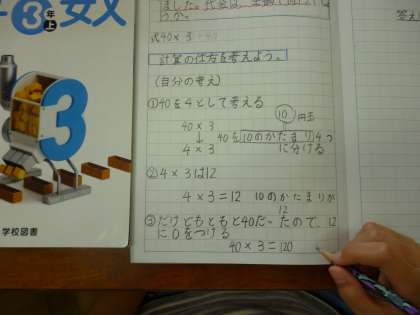 算数
3年上
3
学校図書
ました。代金は、全部で
うか。
式40×3
計算の仕方を考えよう。
(自分の考え)
①40を4として考える
10 円玉
40×3
↓ 40を10のかたまり4つ
4×3 に分ける
②4×3は12
4×3=12 10のかたまりが
12
③だけどもともと40だったので、12
に0をつける
40×3=120
答え